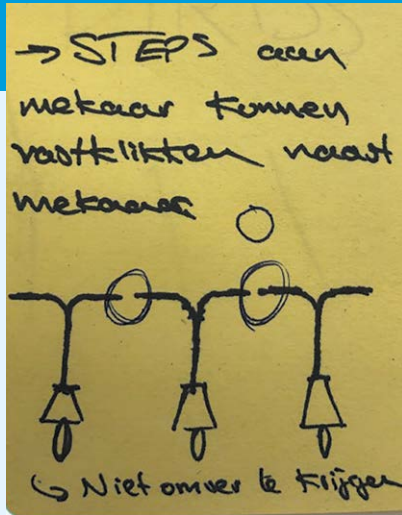 → STEPS aan
mekaar kunnen
vastklikken naast
mekaar.
↳ Niet omver te krijgen